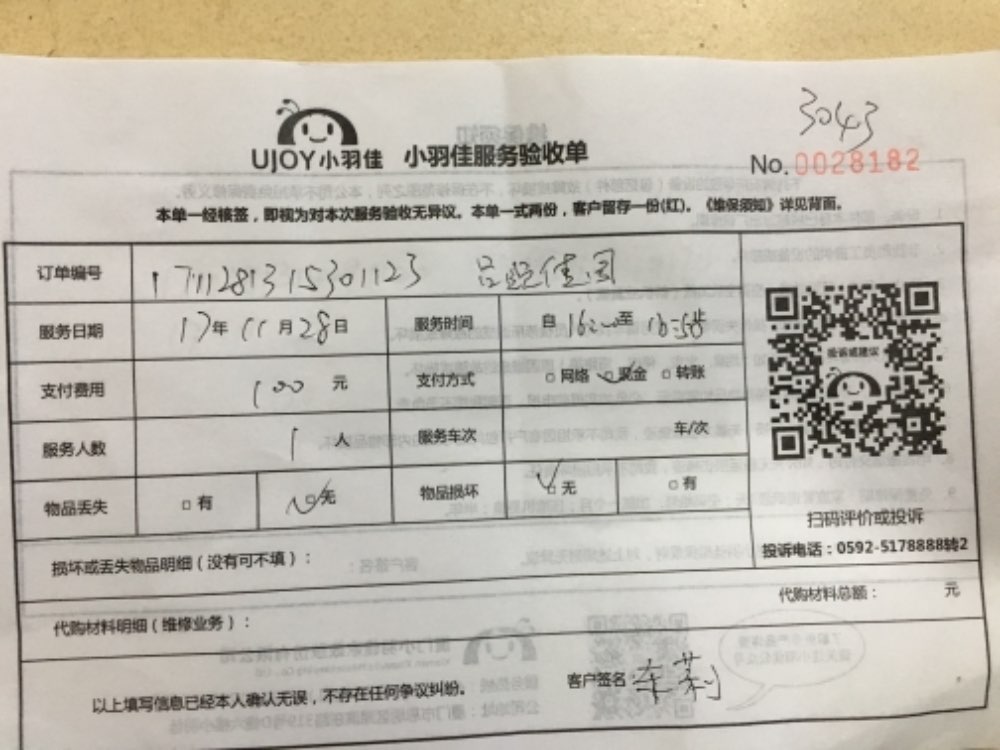 3043
UJOY小羽佳 小羽佳服务验收单
No.0028182
本单一经核签，即视为对本次服务验收无异议。本单一式两份，客户留存一份(红)。《维保须知》详见背面。
订单编号 1711281315301123 吕岭佳园
服务日期 17年11月28日 服务时间 自16:00至16:58
支付费用 100 元 支付方式 □网络 ☑现金 □转账
服务人数 1 人 服务车次 车/次
物品丢失 □有 ☑无 物品损坏 ☑无 □有
投诉或建议
扫码评价或投诉
投诉电话：0592-5178888转2
损坏或丢失物品明细（没有可不填）：
代购材料总额： 元
代购材料明细（维修业务）：
以上填写信息已经本人确认无误，不存在任何争议纠纷。
客户签名：